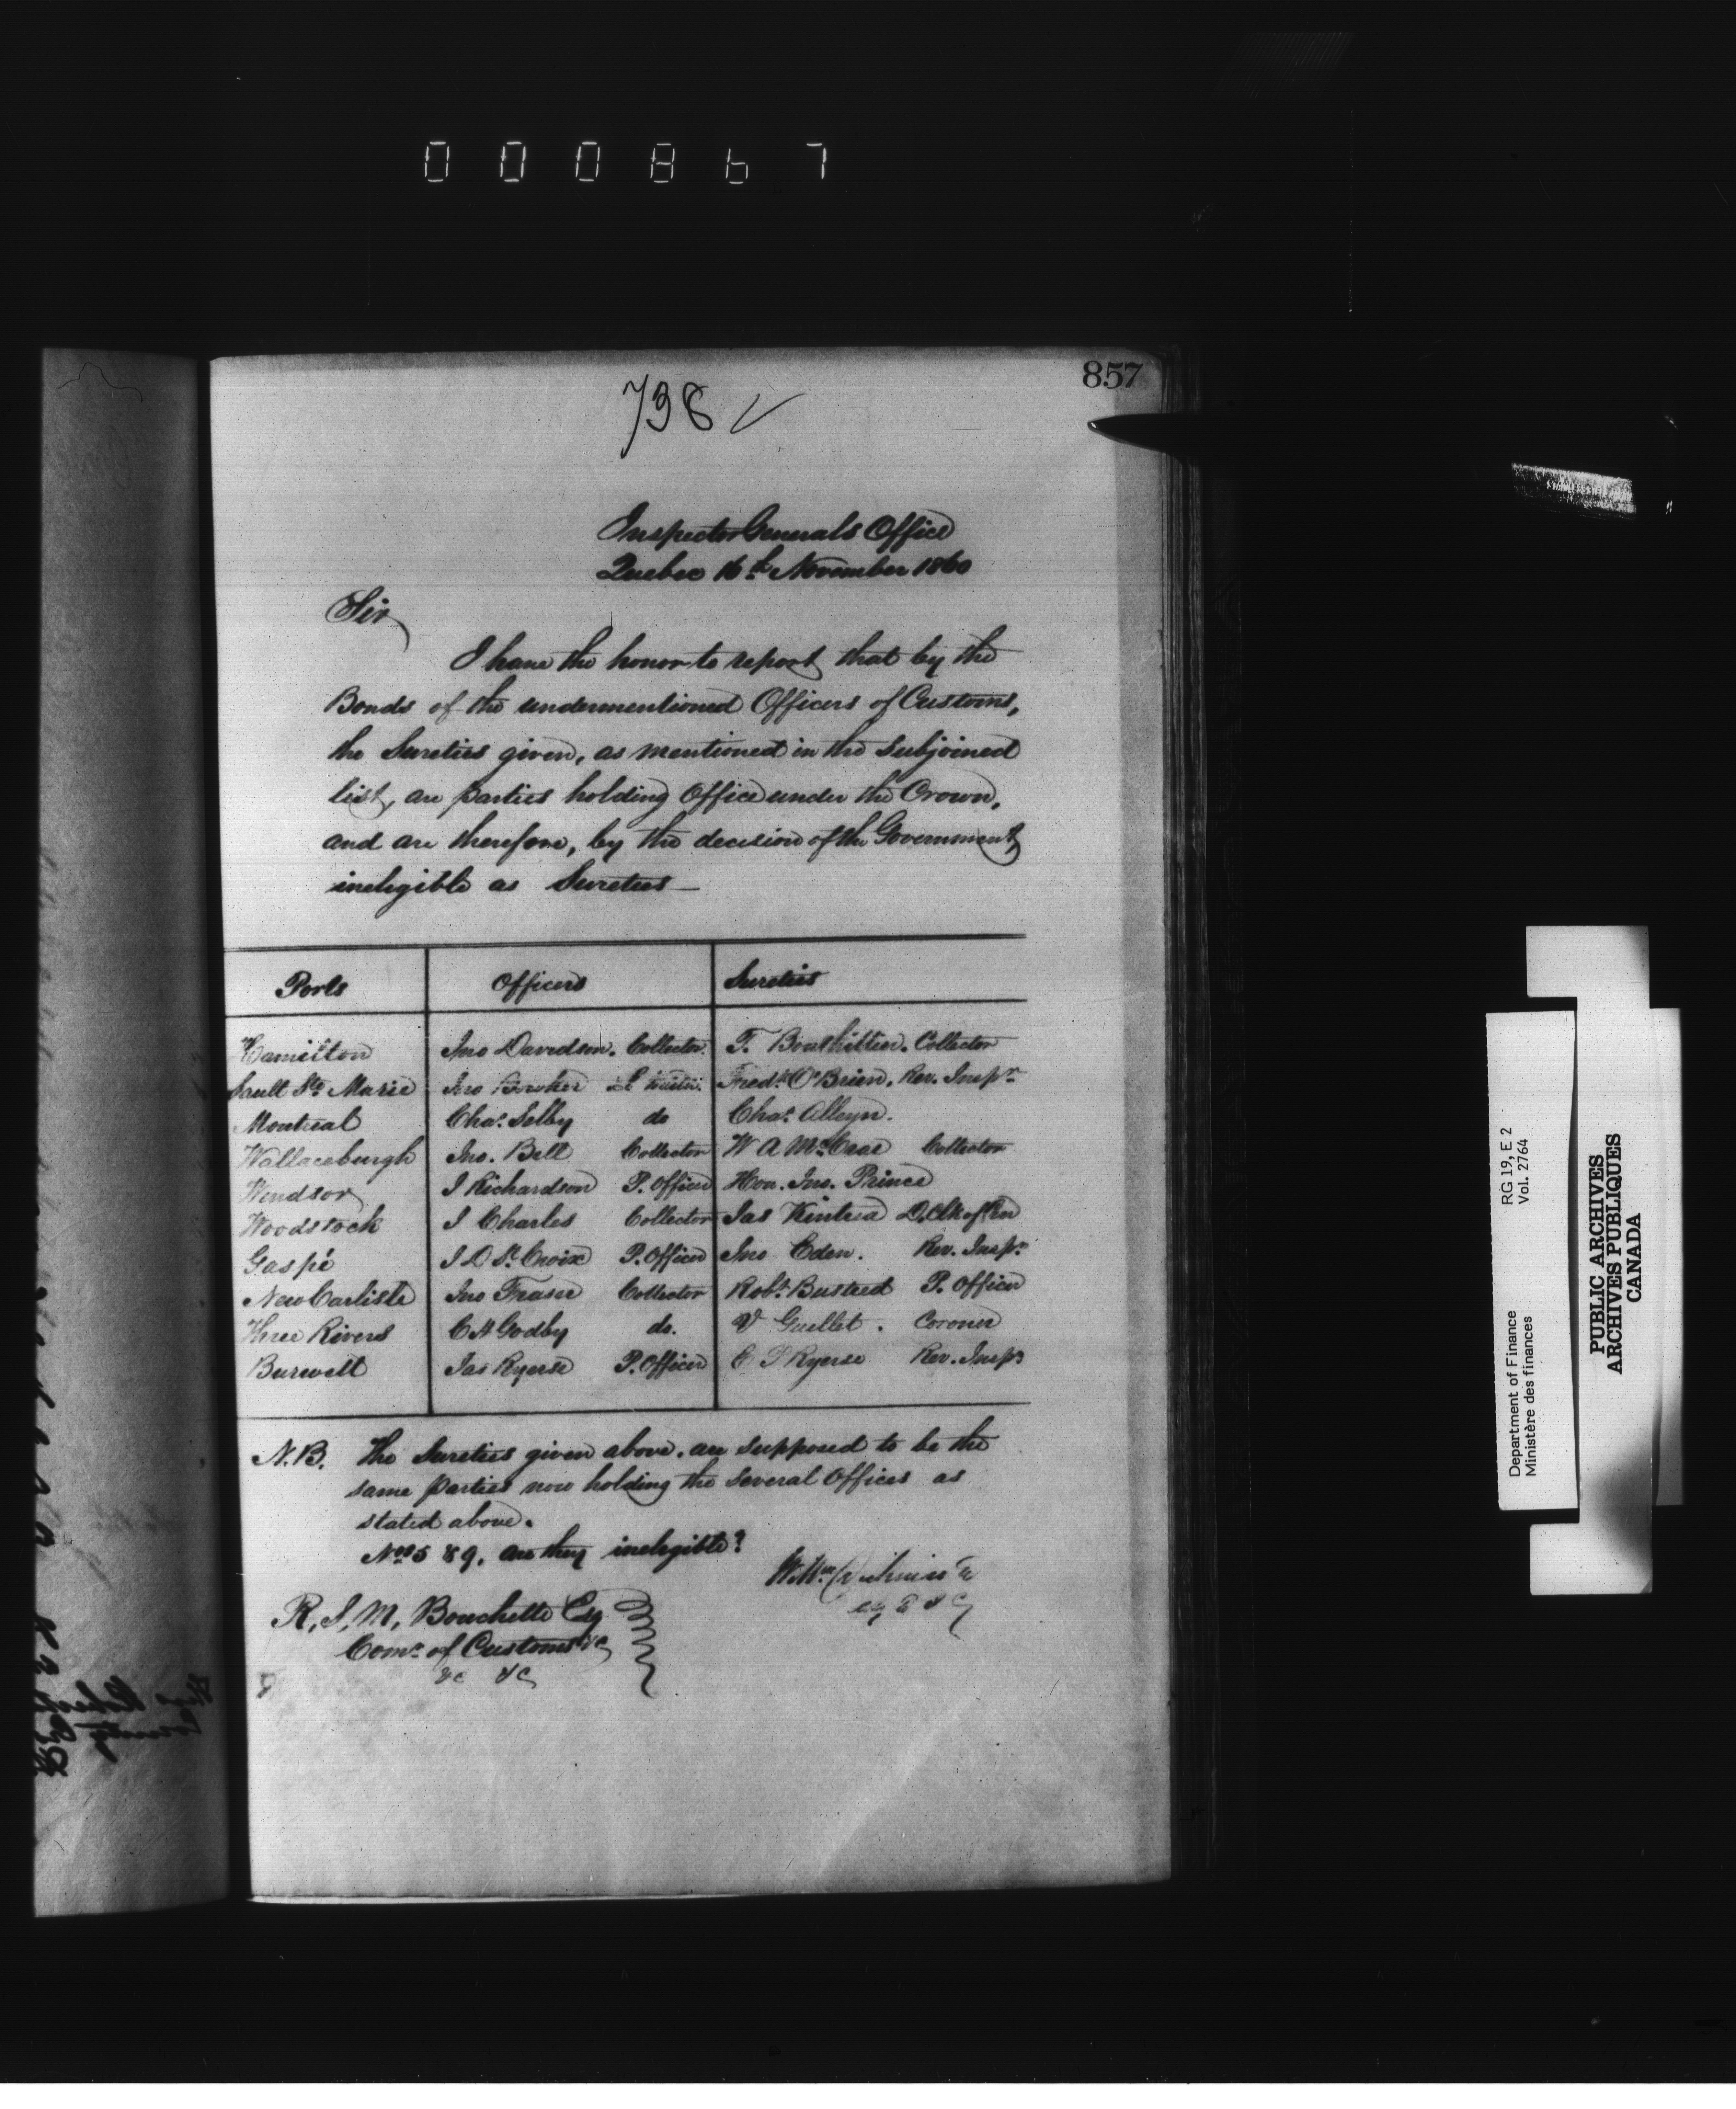 000867
857
738 ✓
Inspector Generals Office
Quebec 16th November 1860
Sir
I have the honor to report that by the
Bonds of the undermentioned Officers of Customs,
the Sureties given, as mentioned in the subjoined
list, are parties holding Office under the Crown,
and are therefore, by the decision of the Government,
ineligible as Sureties —
Ports Officers Sureties
Hamilton Jno Davidson. Collector. T. Collector
Sault Ste Marie Jno Fredk O'Brien. Rev. Inspr
Montreal Chas Selby do Chas Alleyn.
Wallaceburgh Jno. Bell Collector W A McCrae Collector
Windsor J Richardson P. Officer Hon. Jno. Prince
Woodstock J Charles Collector Jas Kintrea D. Clk of
Gaspé J D St. Croix P. Officer Jno Eden. Rev. Inspr
New Carlisle Jno Fraser Collector Robt Busteed P. Officer
Three Rivers C A Godby do. V Guillet. Coroner
Burwell Jas Ryerse P. Officer E P Ryerse Rev. Inspr
N.B. The Sureties given above, are supposed to be the
same parties now holding the several Offices as
stated above.
Nos 5 & 9, are they ineligible?
R, S, M, Bouchette Esq
Comr of Customs &c
&c &c
RG 19, E 2
Vol. 2764
Department of Finance
Ministère des finances
PUBLIC ARCHIVES
ARCHIVES PUBLIQUES
CANADA